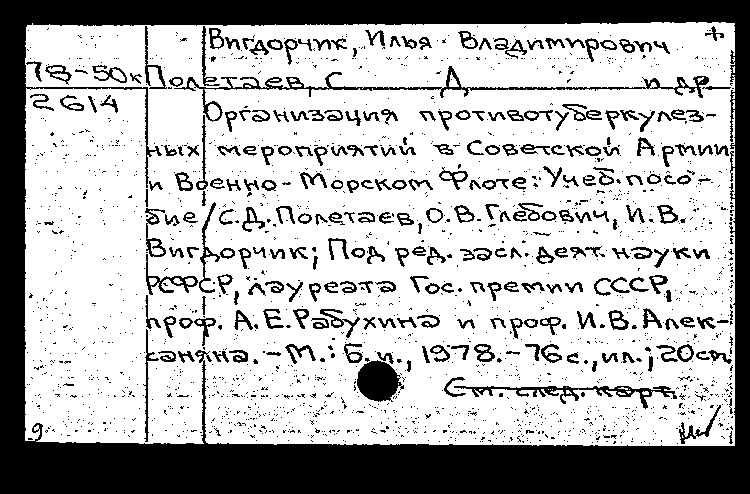 Вигдорчик, Илья Владимирович +
78-50к Полетаев, С Д, и др.
2614
Организация противотуберкулез-
ных мероприятий в Советской Армии
и Военно-Морском Флоте: Учеб. посо-
бие / С.Д. Полетаев, О.В. Глебович, И.В.
Вигдорчик; Под ред. засл. деят. науки
РСФСР, лауреата Гос. премии СССР,
проф. А.Е. Рабухина и проф. И.В. Алек-
саняна. - М.: Б.и., 1978. - 76 с., ил.; 20 см
См. след. карт.
9